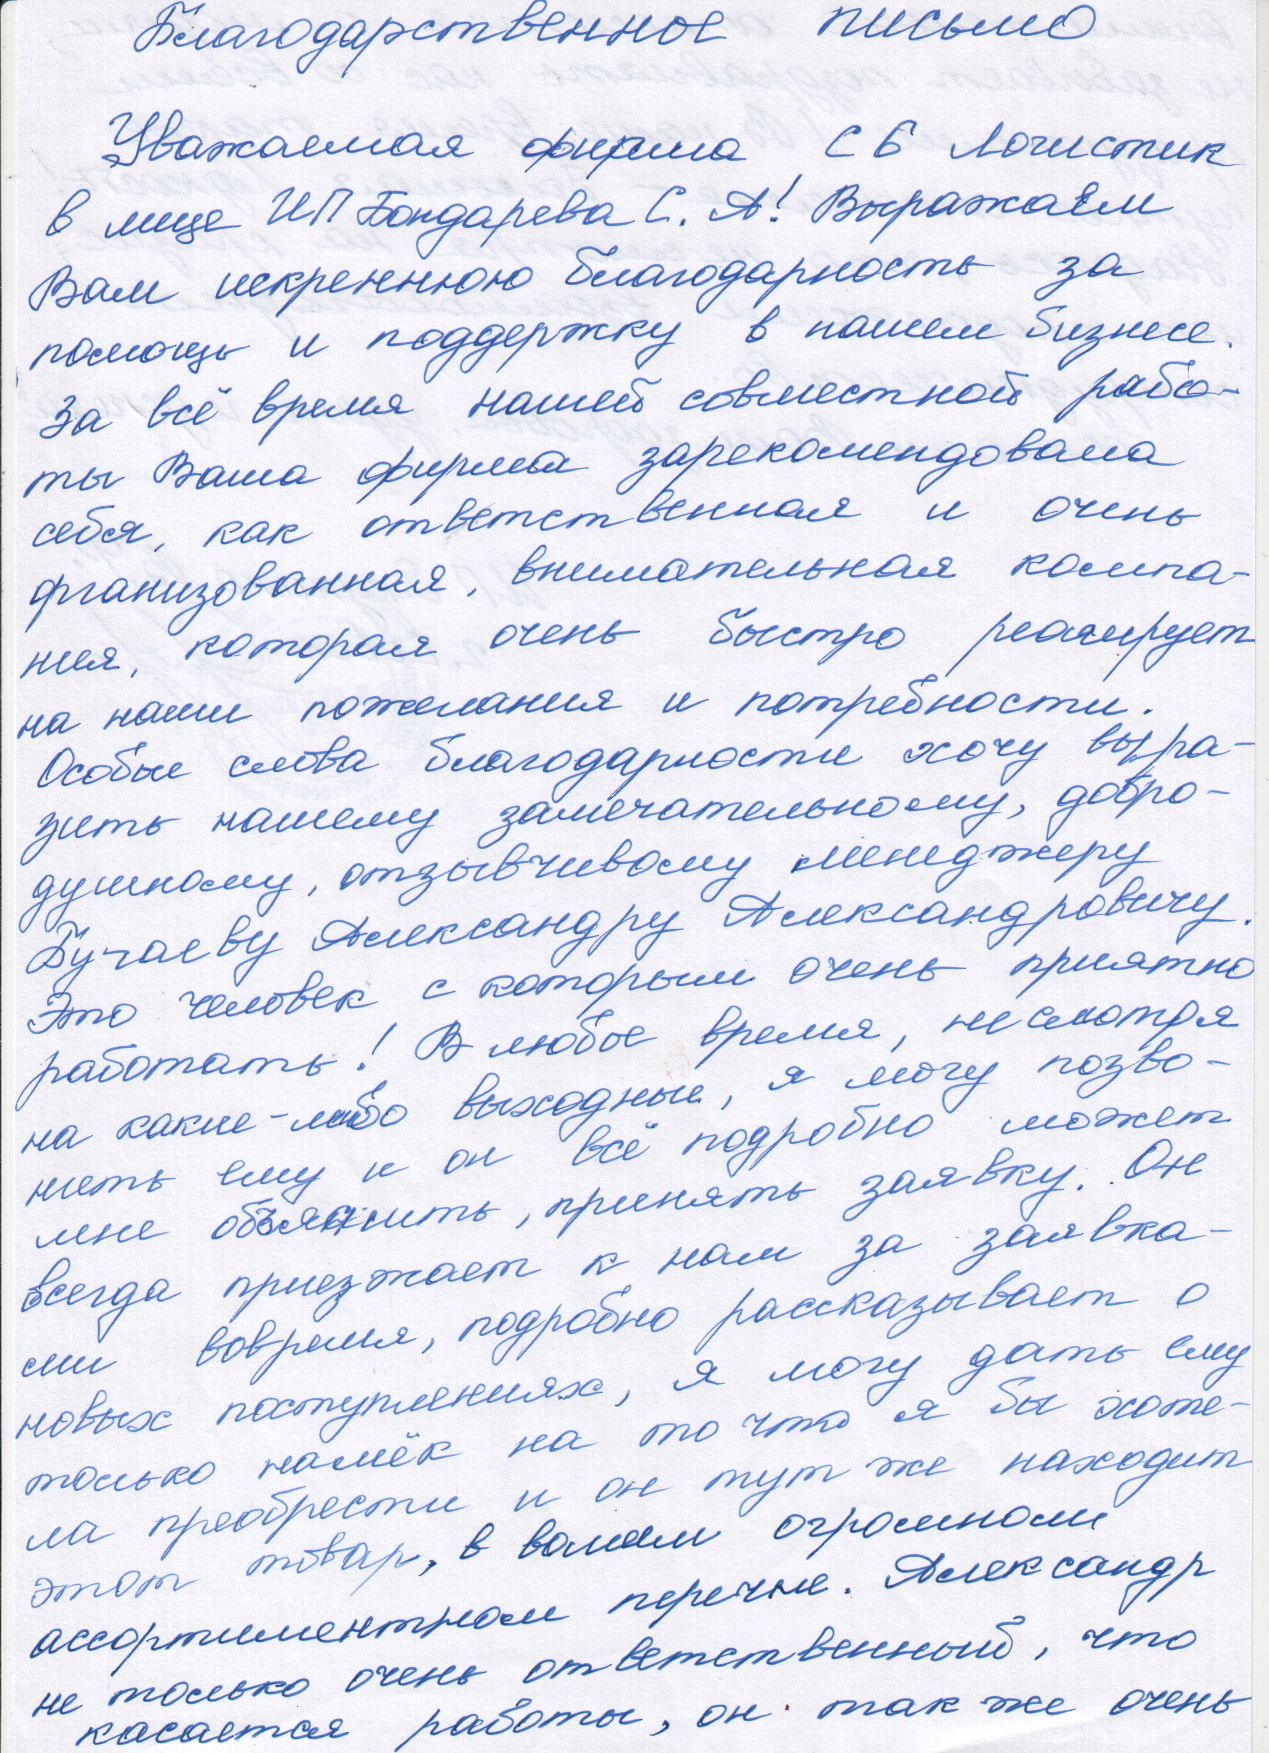 Благодарственное письмо
Уважаемая фирма СБ Логистик
в лице ИП Бондарева С. А! Выражаем
Вам искреннюю благодарность за
помощь и поддержку в нашем бизнесе.
За всё время нашей совместной рабо-
ты Ваша фирма зарекомендовала
себя, как ответственная и очень
организованная, внимательная компа-
ния, которая очень быстро реагирует
на наши пожелания и потребности.
Особые слова благодарности хочу выра-
зить нашему замечательному, добро-
душному, отзывчивому менеджеру
Бучаеву Александру Александровичу.
Это человек с которым очень приятно
работать! В любое время, не смотря
на какие-либо выходные, я могу позво-
нить ему и он всё подробно может
мне объяснить, принять заявку. Он
всегда приезжает к нам за заявка-
ми вовремя, подробно рассказывает о
новых поступлениях, я могу дать ему
только намёк на то что я бы хоте-
ла преобрести и он тут же находит
этот товар, в вашем огромном
ассортиментном перечне. Александр
не только очень ответственный, что
касается работы, он так же очень